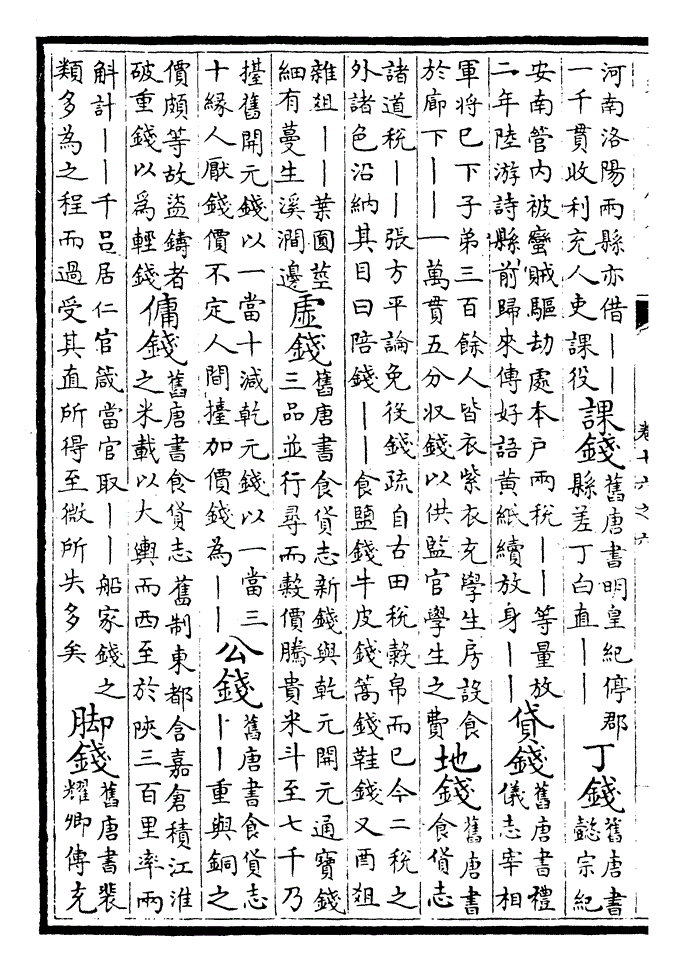 河南洛陽兩縣亦借｜｜
一千貫收利充人吏課役
課錢
舊唐書明皇紀停郡
縣差丁白直｜｜
丁錢
舊唐書
懿宗紀
安南管内被蠻賊驅劫處本戶兩稅｜｜等量放
二年陸游詩縣前歸來傳好語黄紙續放身｜｜
貸錢
舊唐書禮
儀志宰相
軍將已下子弟三百餘人皆衣紫衣充學生房設食
於廊下｜｜｜一萬貫五分収錢以供監官學生之費
地錢
舊唐書
食貨志
諸道稅｜｜張方平論免役錢疏自古田稅糓帛而已今二稅之
外諸色沿納其目曰陪錢｜｜食鹽錢牛皮錢蒿錢鞋錢又酉爼
雜爼｜｜葉圓莖
細有蔓生溪澗邊
虛錢
舊唐書食貨志新錢與乾元開元通寶錢
三品並行尋而糓價騰貴米斗至七千乃
擡舊開元錢以一當十減乾元錢以一當三
十縁人厭錢價不定人間擡加價錢為｜｜
公錢
舊唐書食貨志
｜｜重與銅之
價頗等故盜鑄者
破重錢以為輕錢
傭錢
舊唐書食貨志舊制東都含嘉倉積江淮
之米載以大輿而西至於陜三百里率兩
斛計｜｜千吕居仁官箴當官取｜｜船家錢之
類多為之程而過受其直所得至微所失多矣
脚錢
舊唐書裴
耀卿傳充
卷十六之六